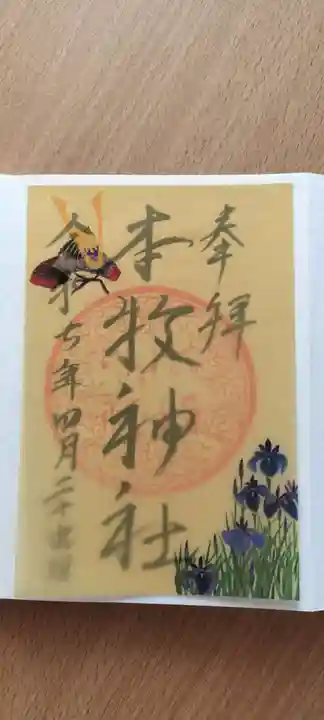 奉拝
本牧神社
令和七年四月二十